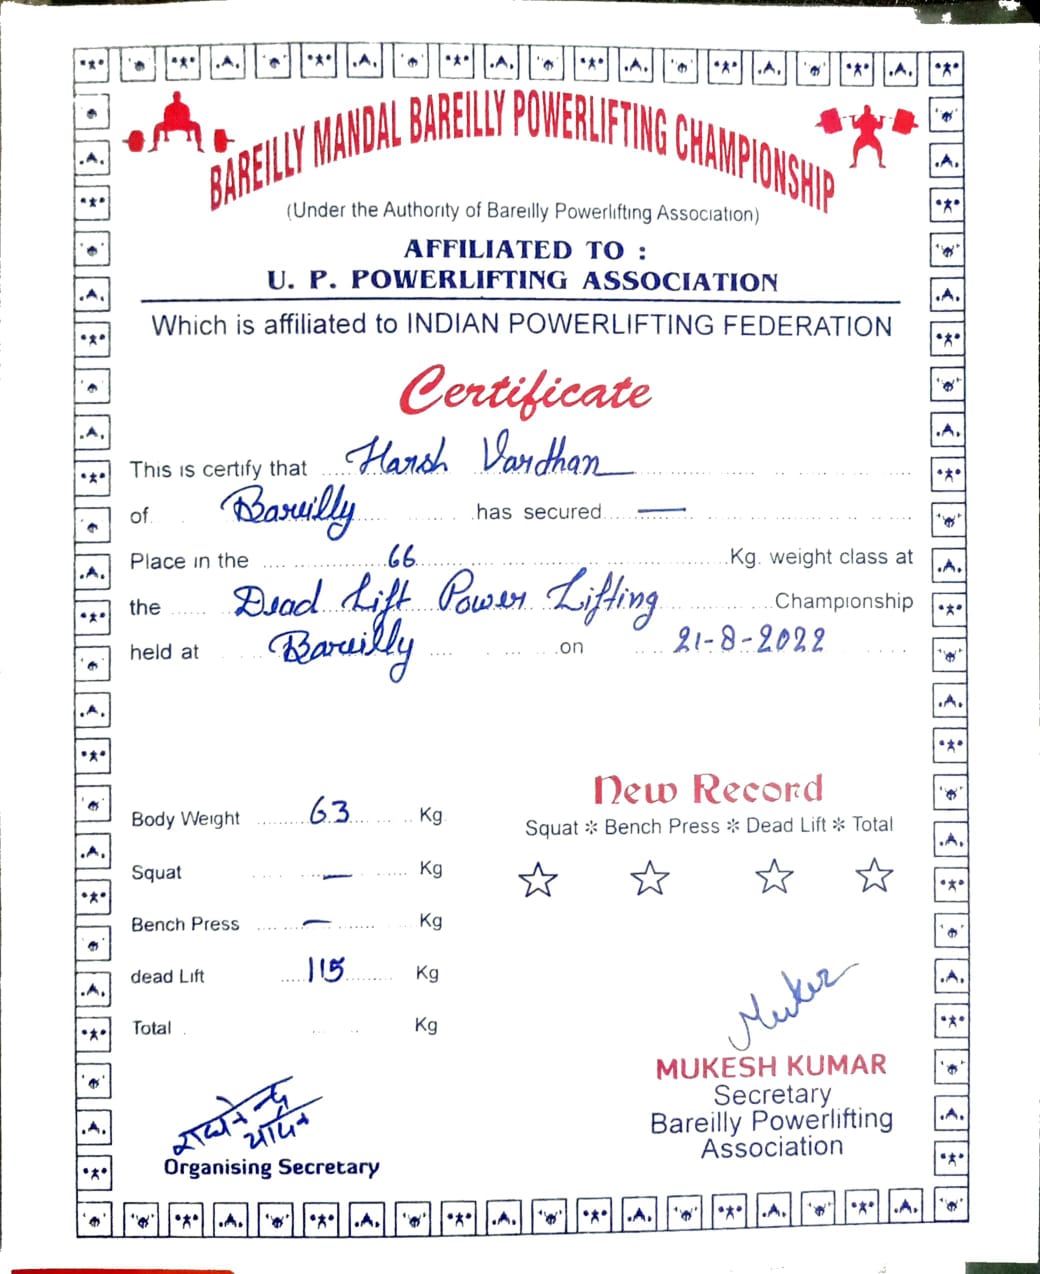 BAREILLY MANDAL BAREILLY POWERLIFTING CHAMPIONSHIP
(Under the Authority of Bareilly Powerlifting Association)
AFFILIATED TO :
U. P. POWERLIFTING ASSOCIATION
Which is affiliated to INDIAN POWERLIFTING FEDERATION
Certificate
This is certify that Harsh Vardhan
of Bareilly has secured —
Place in the 66 Kg. weight class at
the Dead Lift Power Lifting Championship
held at Bareilly on 21-8-2022
New Record
Squat ✻ Bench Press ✻ Dead Lift ✻ Total
Body Weight 63 Kg
Squat — Kg
Bench Press — Kg
dead Lift 115 Kg
Total Kg
Muker
MUKESH KUMAR
Secretary
Bareilly Powerlifting
Association
Organising Secretary